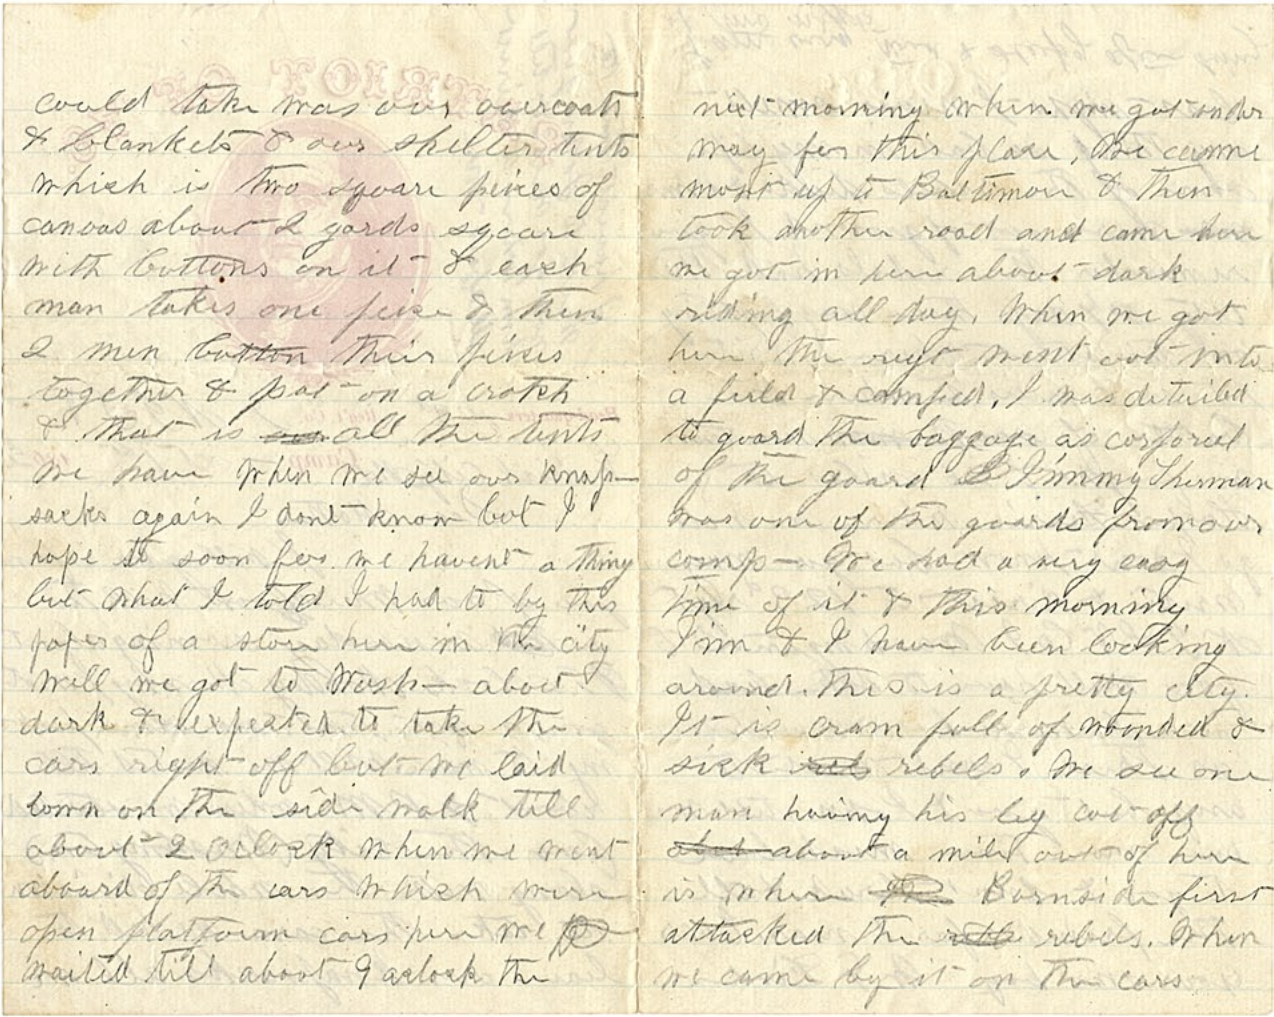 could take was our overcoats
& blankets & our shelter tents
which is two square peices of
canvas about 2 yards square
with buttons on it & each
man takes one peice & then
2 men button their peices
together & put on a crotch
& that is all the tents
we have when we see our knap-
sacks again I dont know but I
hope it soon for we havent a thing
but what I told I had to by this
paper of a store here in the city
Well we got to Wash— about
dark & expected to take the
cars right off but we laid
down on the side walk till
about 2 Oclock when we went
aboard of the cars which were
open platform cars here we
waited till about 9 aclock the
next morning when we got under
way for this place, We camme
most up to Baltimore & then
took another road and came here
we got in here about dark
riding all day. When we got
here the regt went out into
a field & camped. I was detailed
to guard the baggage as corporel
of the guard & Jimmy Sherman
was one of the guards from our
comp— We had a very easy
time of it & this morning
Jim & I have been looking
around. This is a pretty city.
It is cram full of wounded &
sick rebels. We see one
man having his leg cut off
about a mile out of here
is where Burnside first
attacked the rebels. When
we came by it on the cars